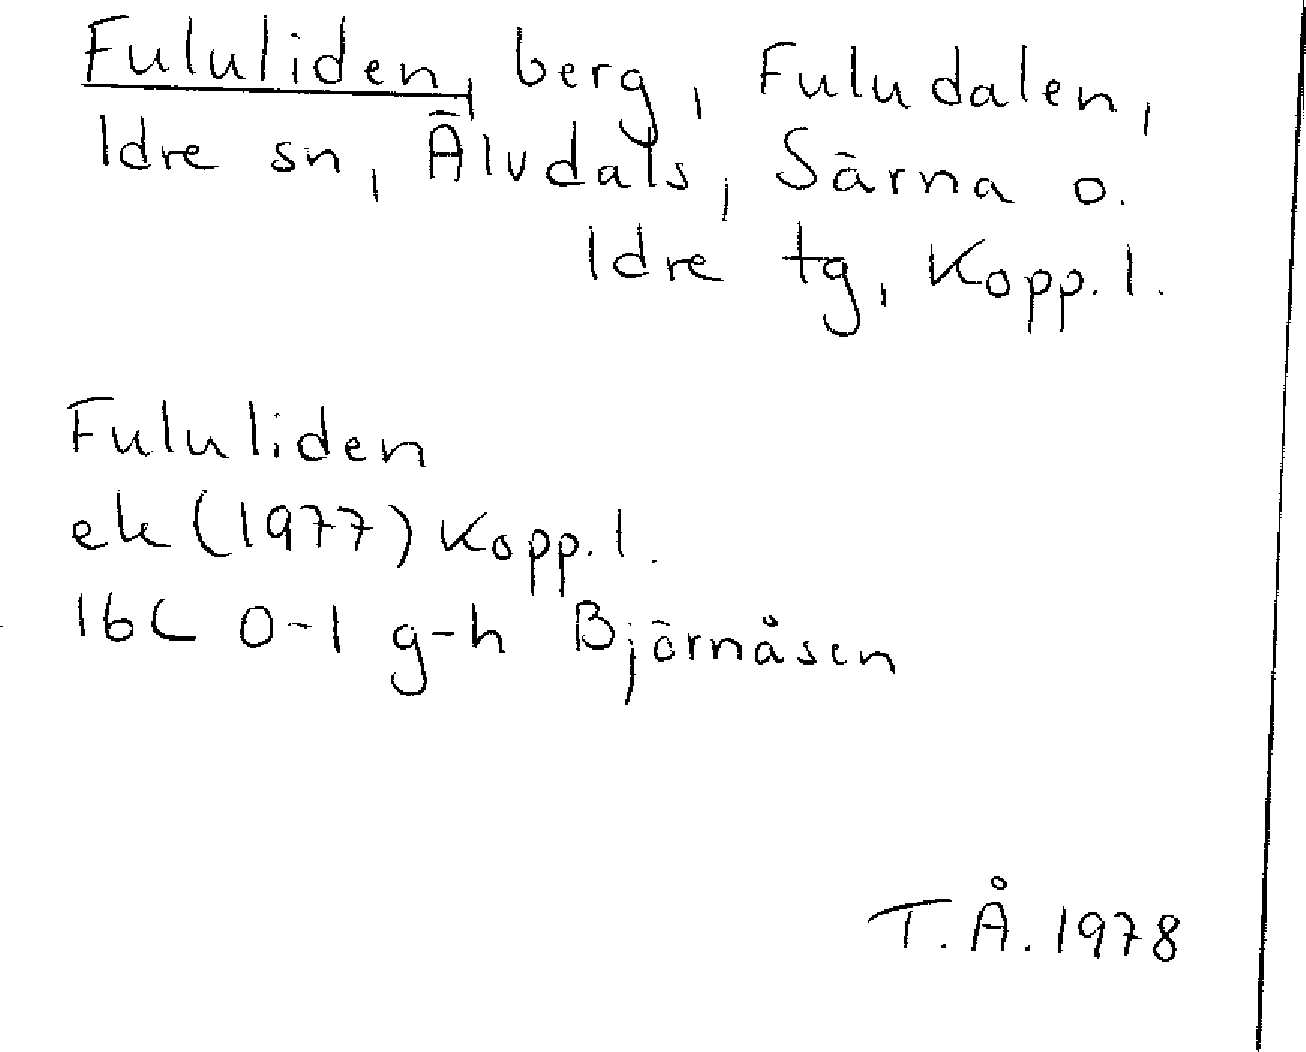 Fululiden, berg, Fuludalen,
Idre sn, Älvdals, Särna o.
Idre tg, Kopp. l.
Fululiden
ek (1977) Kopp. l.
16C 0-1 g-h Björnåsen
T.Å. 1978